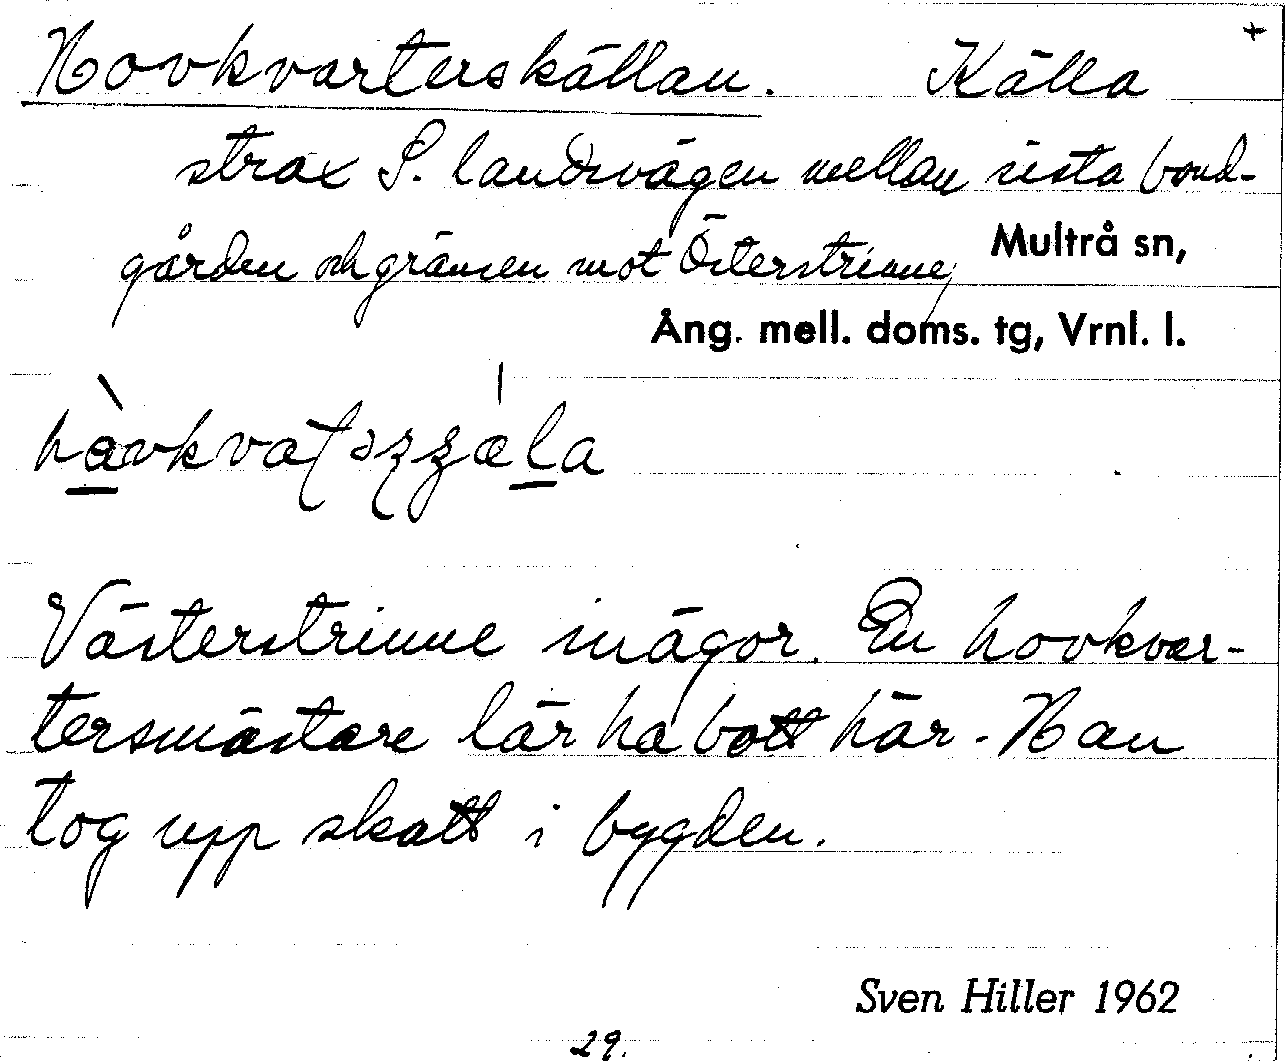 +
Hovkvarterskällan. Källa
strax S. landsvägen mellan sista bond-
gården och gränsen mot Österstrinne,
Multrå sn,
Ång. mell. doms. tg, Vrnl. l.
Västerstrinne inägor. En hovkvar-
tersmästare lär ha bott här. Han
tog upp skatt i bygden.
Sven Hiller 1962
29.